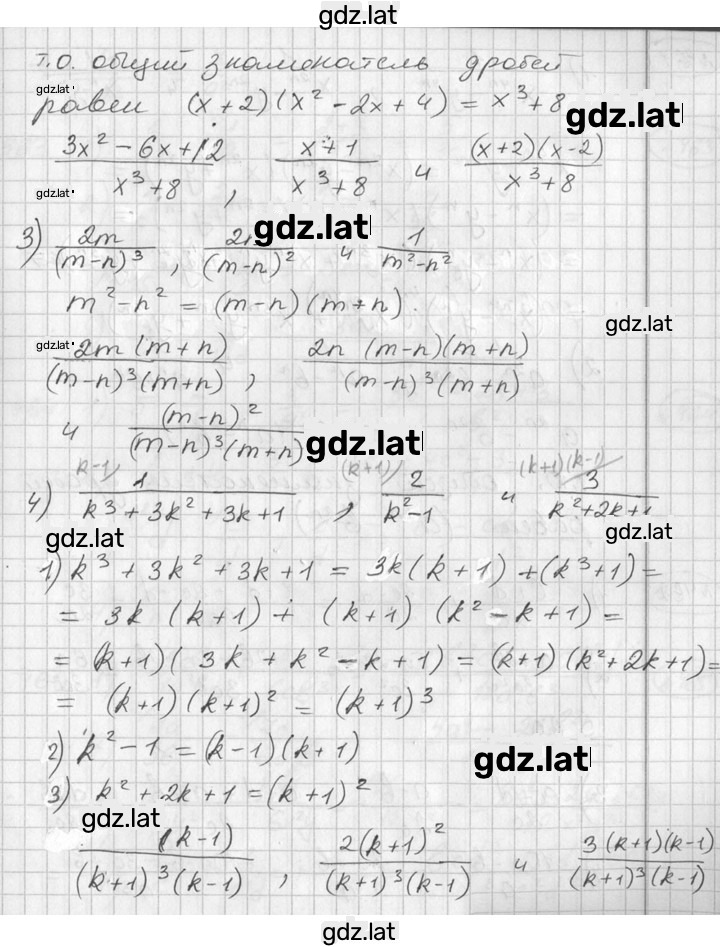 gdz.lat
т.о. общий знаменатель дробей
gdz.lat
равен (x + 2)(x² - 2x + 4) = x³ + 8
gdz.lat
(3x² - 6x + 12)/(x³ + 8), (x + 1)/(x³ + 8) и ((x + 2)(x - 2))/(x³ + 8)
gdz.lat
gdz.lat
3) 2m/(m-n)³, 2n/(m-n)² и 1/(m²-n²)
m² - n² = (m-n)(m+n)
gdz.lat
gdz.lat
2m(m+n)/((m-n)³(m+n)), 2n(m-n)(m+n)/((m-n)³(m+n))
и (m-n)²/((m-n)³(m+n))
gdz.lat
k-1/ (k+1)/ (k+1)(k-1)/
4) 1/(k³ + 3k² + 3k + 1), 2/(k²-1) и 3/(k²+2k+1)
gdz.lat
gdz.lat
1) k³ + 3k² + 3k + 1 = 3k(k+1) + (k³+1) =
= 3k(k+1) + (k+1)(k² - k + 1) =
= (k+1)(3k + k² - k + 1) = (k+1)(k² + 2k + 1) =
= (k+1)(k+1)² = (k+1)³
2) k² - 1 = (k-1)(k+1)
gdz.lat
3) k² + 2k + 1 = (k+1)²
gdz.lat
(k-1)/((k+1)³(k-1)), 2(k+1)²/((k+1)³(k-1)) и 3(k+1)(k-1)/((k+1)³(k-1))
gdz.lat